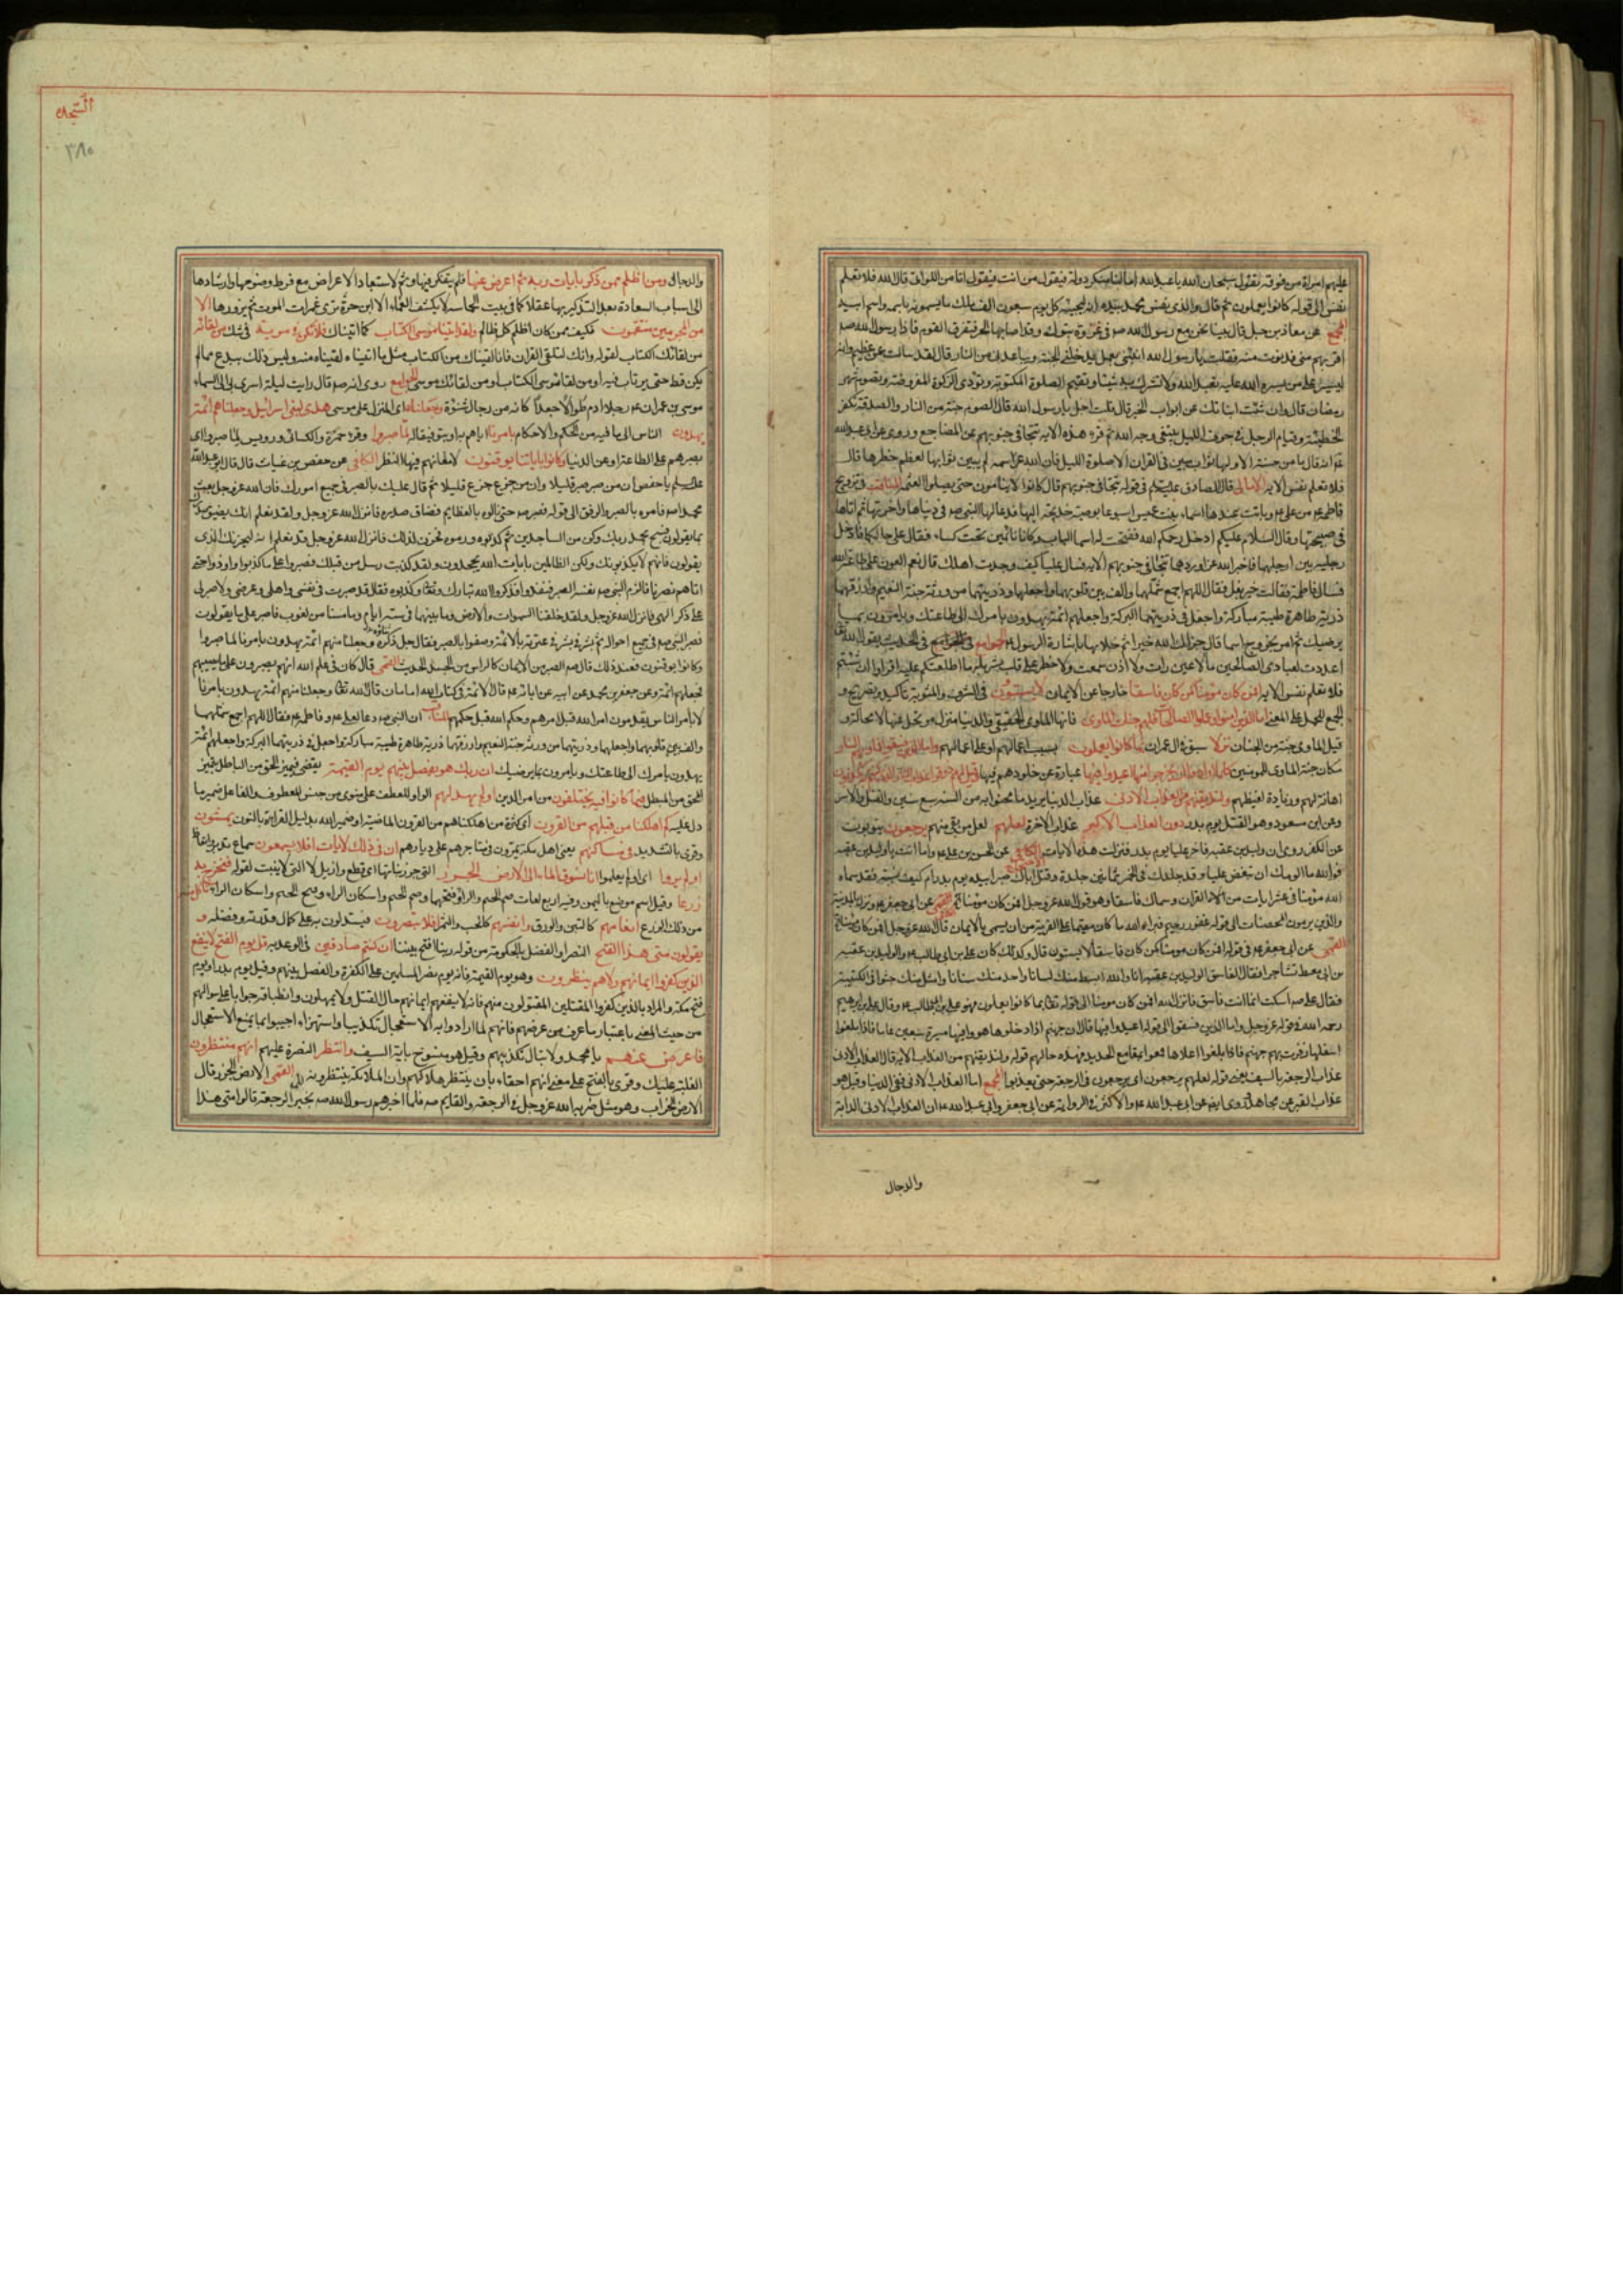 عليهم امراة من فوقه تقول سبحان الله يا عبد الله اما لنا منك دولة فيقول من انت فيقول انا من اللواتى قال الله فلا تعلم
نفس الى قوله كانوا يعملون ثم قال والذى نفس محمد بيده انه ليجيئه كل يوم سبعون الف ملك باسمه واسم ابيه
المجمع عن معاذ بن جبل قال بينا نحن مع رسول الله ص فى غزوة تبوك وقد اصابنا الحر فتفرق القوم فاذا رسول الله ص
اقربهم منى فدنوت منه فقلت يا رسول الله انبئنى بعمل يدخلنى الجنة ويباعدنى من النار قال لقد سالت عن عظيم وانه
ليسير على من يسره الله عليه تعبد الله ولا تشرك به شيئا وتقيم الصلوة المكتوبة وتؤدى الزكوة المفروضة وتصوم شهر
رمضان قال وان شئت انباتك عن ابواب الخير قال قلت اجل يا رسول الله قال الصوم جنة من النار والصدقة تكفر
الخطيئة وقيام الرجل فى جوف الليل يبتغى وجه الله ثم قرء هذه الاية تتجافى جنوبهم عن المضاجع وروى عن ابى عبد الله
انه قال ما من حسنة الا ولها ثواب مبين فى القران الا صلوة الليل فان الله عز اسمه لم يبين ثوابها لعظم خطرها قال
فلا تعلم نفس الاية الامالى قال الصادق عليه السلم فى قوله تتجافى جنوبهم قال كانوا لا ينامون حتى يصلوا العتمة المناقب فى تزويج
فاطمة من على وباتت عندها اسماء بنت عميس اسبوعا بوصية خديجة اليها فدعا لها النبى ص فى دنياها واخرتها ثم اتاها
فى صبيحتها وقال السلام عليكم ادخل رحمكم الله ففتحت له اسما الباب وكانا نائمين تحت كساء فقال على حالكما فادخل
رجليه بين ارجلهما فاخبر الله عن اورادهما تتجافى جنوبهم الاية فسال عليا كيف وجدت اهلك قال نعم العون على طاعة الله
فسال فاطمة فقالت خير بعل فقال اللهم اجمع شملهما والف بين قلوبهما واجعلهما وذريتهما من ورثة جنة النعيم وارزقهما
ذرية طاهرة طيبة مباركة واجعل فى ذريتهما البركة واجعلهم ائمة يهدون بامرك الى طاعتك ويامرون بما
يرضيك ثم امر بخروج اسما قال جزاك الله خيرا ثم خلا بها باشارة الرسول الجوامع فى الحديث يقول الله
اعددت لعبادى الصالحين ما لا عين رات ولا اذن سمعت ولا خطر على قلب بشر بله ما اطلعتكم عليه اقراوا ان شئتم
فلا تعلم نفس الاية افمن كان مؤمنا كمن كان فاسقا خارجا عن الايمان لا يستوون فى الشرف والمثوبة تاكيد وتصريح و
الجمع للحمل على المعنى اما الذين امنوا وعملوا الصالحات فلهم جنات الماوى فانها الماوى الحقيقى والدنيا منزل مرتحل عنها لا محالة و
قيل الماوى جنة من الجنان نزلا سبق فى ال عمران بما كانوا يعملون بسبب اعمالهم او على اعمالهم واما الذين فسقوا فماويهم النار
مكان جنة الماوى للمؤمنين كلما ارادوا ان يخرجوا منها اعيدوا فيها عبارة عن خلودهم فيها وقيل لهم ذوقوا عذاب النار الذى كنتم به تكذبون
اهانة لهم وزيادة لغيظهم ولنذيقنهم من العذاب الادنى عذاب الدنيا يريد ما محنوا به من السنة سبع سنين والقتل والاسر
وعن ابن مسعود وهو القتل يوم بدر دون العذاب الاكبر عذاب الاخرة لعلهم لعل من بقى منهم يرجعون يتوبون
عن الكفر روى ان وليد بن عقبة فاخر عليا يوم بدر فنزلت هذه الايات الاحتجاج عن الحسن بن على واما انت يا وليد بن عقبة
فوالله ما الومك ان تبغض عليا وقد جلدك فى الخمر ثمانين جلدة وقتل اباك صبرا بيده يوم بدر ام كيف تسبه فقد سماه
الله مؤمنا فى عشر ايات من القران وسماك فاسقا وهو قول الله عز وجل افمن كان مؤمنا الكافى عن ابى جعفر ونزل بالمدينة
والذين يرمون المحصنات الى قوله غفور رحيم فبراه الله ما كان مقيما على الفرية من ان يسمى بالايمان قال الله عز وجل افمن كان مؤمنا
القمى عن ابى جعفر فى قوله افمن كان مؤمنا كمن كان فاسقا لا يستوون قال وذلك كان على بن ابى طالب والوليد بن عقبة
بن ابى معيط تشاجرا فقال الفاسق الوليد بن عقبة انا والله ابسط منك لسانا واحد منك سنانا وامثل منك جثوا فى الكتيبة
فقال على اسكت انما انت فاسق فانزل الله افمن كان مؤمنا الى قوله بما كانوا يعملون فهو على بن ابى طالب وقال على بن ابرهيم
رحمه الله فى قوله عز وجل واما الذين فسقوا الى قوله اعيدوا فيها قال ان جهنم اذا دخلوها هووا فيها مسيرة سبعين عاما فاذا بلغوا
اسفلها زفرت بهم جهنم فاذا بلغوا اعلاها قمعوا بمقامع الحديد فهذه حالهم قوله ولنذيقنهم من العذاب الاية قال العذاب الادنى
عذاب الرجعة بالسيف معنى قوله لعلهم يرجعون اى يرجعون فى الرجعة حتى يعذبوا المجمع اما العذاب الادنى ففى الدنيا وقيل هو
عذاب القبر عن مجاهد وروى ايضا عن ابى عبد الله والاكثر فى الرواية عن ابى جعفر وابى عبد الله ان العذاب الادنى الدابة
والدجال
السجدة
٣٨٠
والدجال ومن اظلم ممن ذكر بايات ربه ثم اعرض عنها فلم يتفكر فيها وثم لاستبعاد الاعراض مع فرط وضوحها وارشادها
الى اسباب السعادة بعد التذكير بها عقلا كما فى بيت الحماسة لا يكشف الغماء الا ابن حرة يرى غمرات الموت ثم يزورها انا
من المجرمين منتقمون فكيف ممن كان اظلم كل ظالم ولقد اتينا موسى الكتاب كما اتيناك فلا تكن فى مرية فى شك من لقائه
من لقائك الكتاب لقوله وانك لتلقى القران فانا لقيناك من الكتاب مثل ما اتيناه لقيناه منه وليس ذلك ببدع مما لم
يكن قط حتى يرتاب فيه او من لقاء موسى الكتاب او من لقائك موسى الجوامع روى انه ص قال رايت ليلة اسرى بى الى السماء
موسى بن عمران رجلا ادم طوالا جعدا كانه من رجال شنوة وجعلناه اى المنزل على موسى هدى لبنى اسرائيل وجعلنا منهم ائمة
يهدون الناس الى ما فيه من الحكم والاحكام بامرنا اياهم به او بتوفيقنا له لما صبروا وقرء حمزة والكسائى ورويس لما صبروا اى
بصبرهم على الطاعة او عن الدنيا وكانوا باياتنا يوقنون لامعانهم فيها النظر الكافى عن حفص بن غياث قال قال ابو عبد الله
عليه السلم يا حفص ان من صبر صبر قليلا وان من جزع جزع قليلا ثم قال عليك بالصبر فى جميع امورك فان الله عز وجل بعث
محمدا ص فامره بالصبر والرفق الى قوله فصبر ص حتى نالوه بالعظايم فضاق صدره فانزل الله عز وجل ولقد نعلم انك يضيق صدرك
بما يقولون فسبح بحمد ربك وكن من الساجدين ثم كذبوه ورموه فحزن لذلك فانزل الله عز وجل قد نعلم انه ليحزنك الذى
يقولون فانهم لا يكذبونك ولكن الظالمين بايات الله يجحدون ولقد كذبت رسل من قبلك فصبروا على ما كذبوا واوذوا حتى
اتاهم نصرنا فالزم النبى ص نفسه الصبر فتعدوا فذكروا الله تبارك وتعالى وكذبوه فقال قد صبرت فى نفسى واهلى وعرضى ولا صبر لى
على ذكر الهى فانزل الله عز وجل ولقد خلقنا السموات والارض وما بينهما فى ستة ايام وما مسنا من لغوب فاصبر على ما يقولون
فصبر النبى ص فى جميع احواله ثم بشر فى عترته بالائمة ووصفوا بالصبر فقال جل ذكره وجعلنا منهم ائمة يهدون بامرنا لما صبروا
وكانوا باياتنا يوقنون فعند ذلك قال ص الصبر من الايمان كالراس من الجسد الحديث القمى قال كان فى علم الله انهم يصبرون على ما يصيبهم
فجعلهم ائمة وعن جعفر بن محمد عن ابيه عن ابائه قال الائمة فى كتاب الله امامان قال الله تعالى وجعلنا منهم ائمة يهدون بامرنا
لا بامر الناس يقدمون امر الله قبل امرهم وحكم الله قبل حكمهم المناقب ان النبى ص دعا لعلى وفاطمة فقال اللهم اجمع شملهما
والف بين قلوبهما واجعلهما وذريتهما من ورثة جنة النعيم وارزقهما ذرية طاهرة طيبة مباركة واجعل فى ذريتهما البركة واجعلهم ائمة
يهدون بامرك الى طاعتك ويامرون بما يرضيك ان ربك هو يفصل بينهم يوم القيمة يقضى فيميز الحق من الباطل بتمييز
المحق من المبطل فيما كانوا فيه يختلفون من امر الدين اولم يهد لهم الواو للعطف على منوى من جنس المعطوف والفاعل ضمير ما
دل عليه كم اهلكنا من قبلهم من القرون اى كثرة من اهلكناهم من القرون الماضية او ضمير الله بدليل القراءة بالنون يمشون
وقرى بالتشديد فى مساكنهم يعنى اهل مكة يمرون فى متاجرهم على ديارهم ان فى ذلك لايات افلا يسمعون سماع تدبر واتعاظ
اولم يروا اى اولم يعلموا انا نسوق الماء الى الارض الجرز التى جرز نباتها اى قطع وازيل لا التى لا تنبت لقوله فنخرج به
زرعا وقيل اسم موضع باليمن وفيه اربع لغات ضم الجيم والراء وفتحهما وضم الجيم وفتح الجيم واسكان الراء تاكل منه
من ذلك الزرع انعامهم كالتبن والورق وانفسهم كالحب والثمر افلا يبصرون فيستدلون به على كمال قدرته وفضله و
يقولون متى هذا الفتح النصر او الفصل بالحكومة من قوله ربنا افتح بيننا ان كنتم صادقين فى الوعد به قل يوم الفتح لا ينفع
الذين كفروا ايمانهم ولا هم ينظرون وهو يوم القيمة فانه يوم نصر المسلمين على الكفرة والفصل بينهم وقيل يوم بدر او يوم
فتح مكة والمراد بالذين كفروا المقتولون منهم فانه لا ينفعهم ايمانهم حال القتل ولا يمهلون وانطباقه جوابا على سوالهم
من حيث المعنى باعتبار ما عرف من غرضهم فانهم لما ارادوا به الاستعجال تكذيبا واستهزاء اجيبوا بما يمنع الاستعجال
فاعرض عنهم يا محمد ولا تبال بتكذيبهم وقيل هو منسوخ باية السيف وانتظر النصرة عليهم انهم منتظرون
الغلبة عليك وقرى بالفتح على معنى انهم احقاء بان ينتظر هلاكهم وان الملائكة ينتظرونه القمى الارض الجرز قال
الارض الخراب وهو مثل ضربه الله عز وجل فى الرجعة والقايم ص فلما اخبرهم رسول الله ص بخبر الرجعة قالوا متى هذا